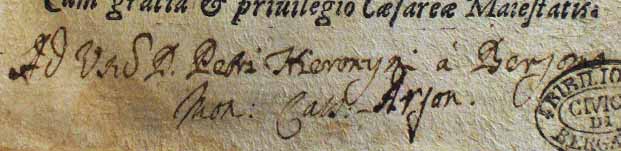 Cum gratia & priuilegio Cæsareæ Maiestatis.
Ad Usũ D. Petri Hieronymi à
Mon: Cass:
BIBLIO
CIVIC
DI
BERGA